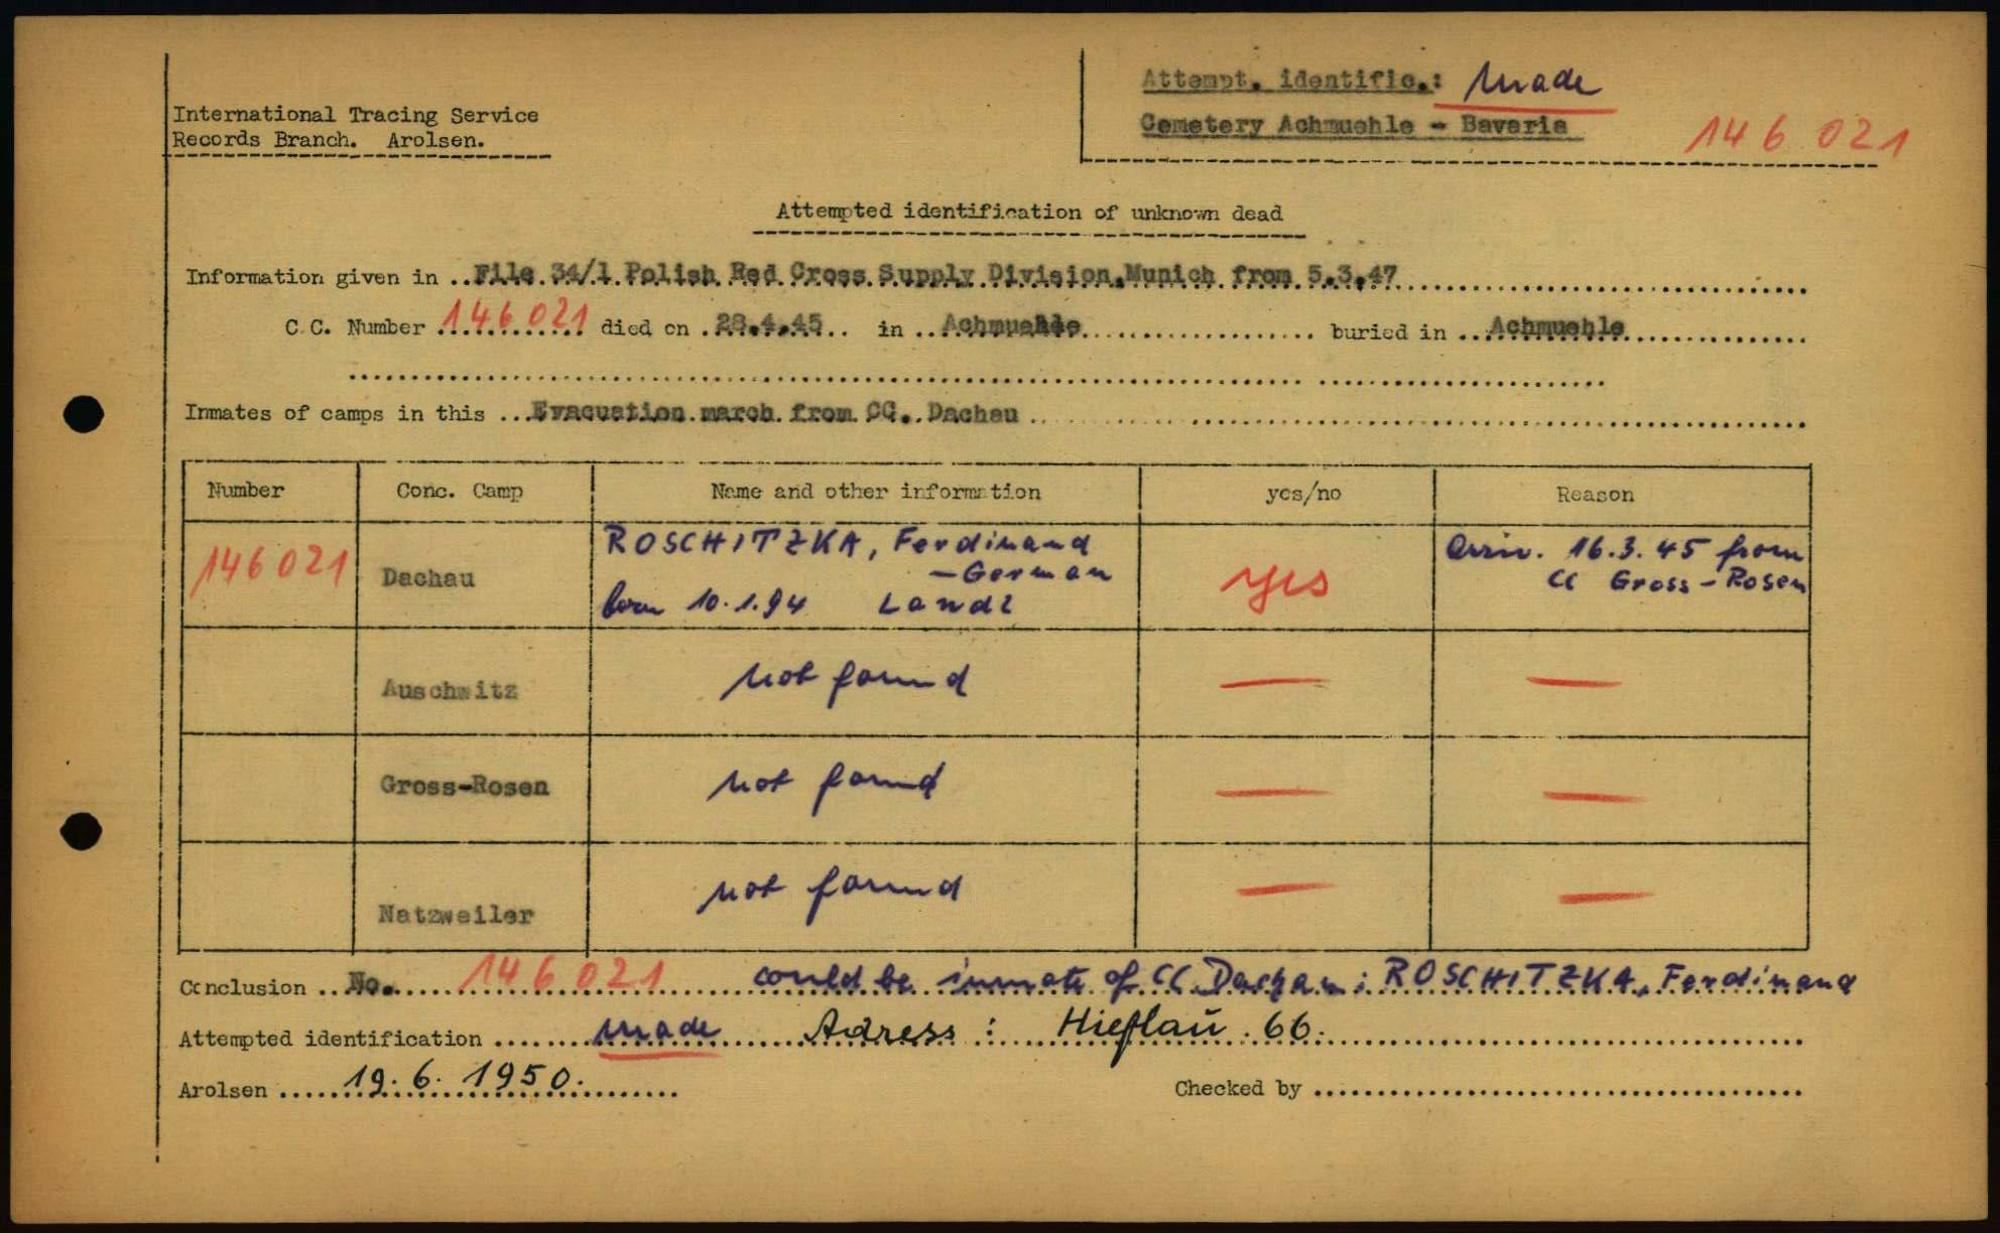 Attempt. identific.: made
International Tracing Service
Records Branch. Arolsen.
Cemetery Achmuehle - Bavaria
146 021
Attempted identification of unknown dead
Information given in ..File 34/1 Polish Red Cross Supply Division,Munich from 5.3.47
C.C. Number 146021 died on 28.4.45 in Achmuehle buried in Achmuehle
Inmates of camps in this ...Evacuation march from CC. Dachau
Number Conc. Camp Name and other information yes/no Reason
146021 Dachau ROSCHITZKA, Ferdinand - German born 10.1.94 Landl yes arriv. 16.3.45 from CC Gross-Rosen
Auschwitz not found — —
Gross-Rosen not found — —
Natzweiler not found — —
Conclusion ..No. 146021 could be inmate of CC. Dachau: ROSCHITZKA, Ferdinand
Attempted identification made Adress: Hieflau. 66.
Arolsen 19. 6. 1950. Checked by